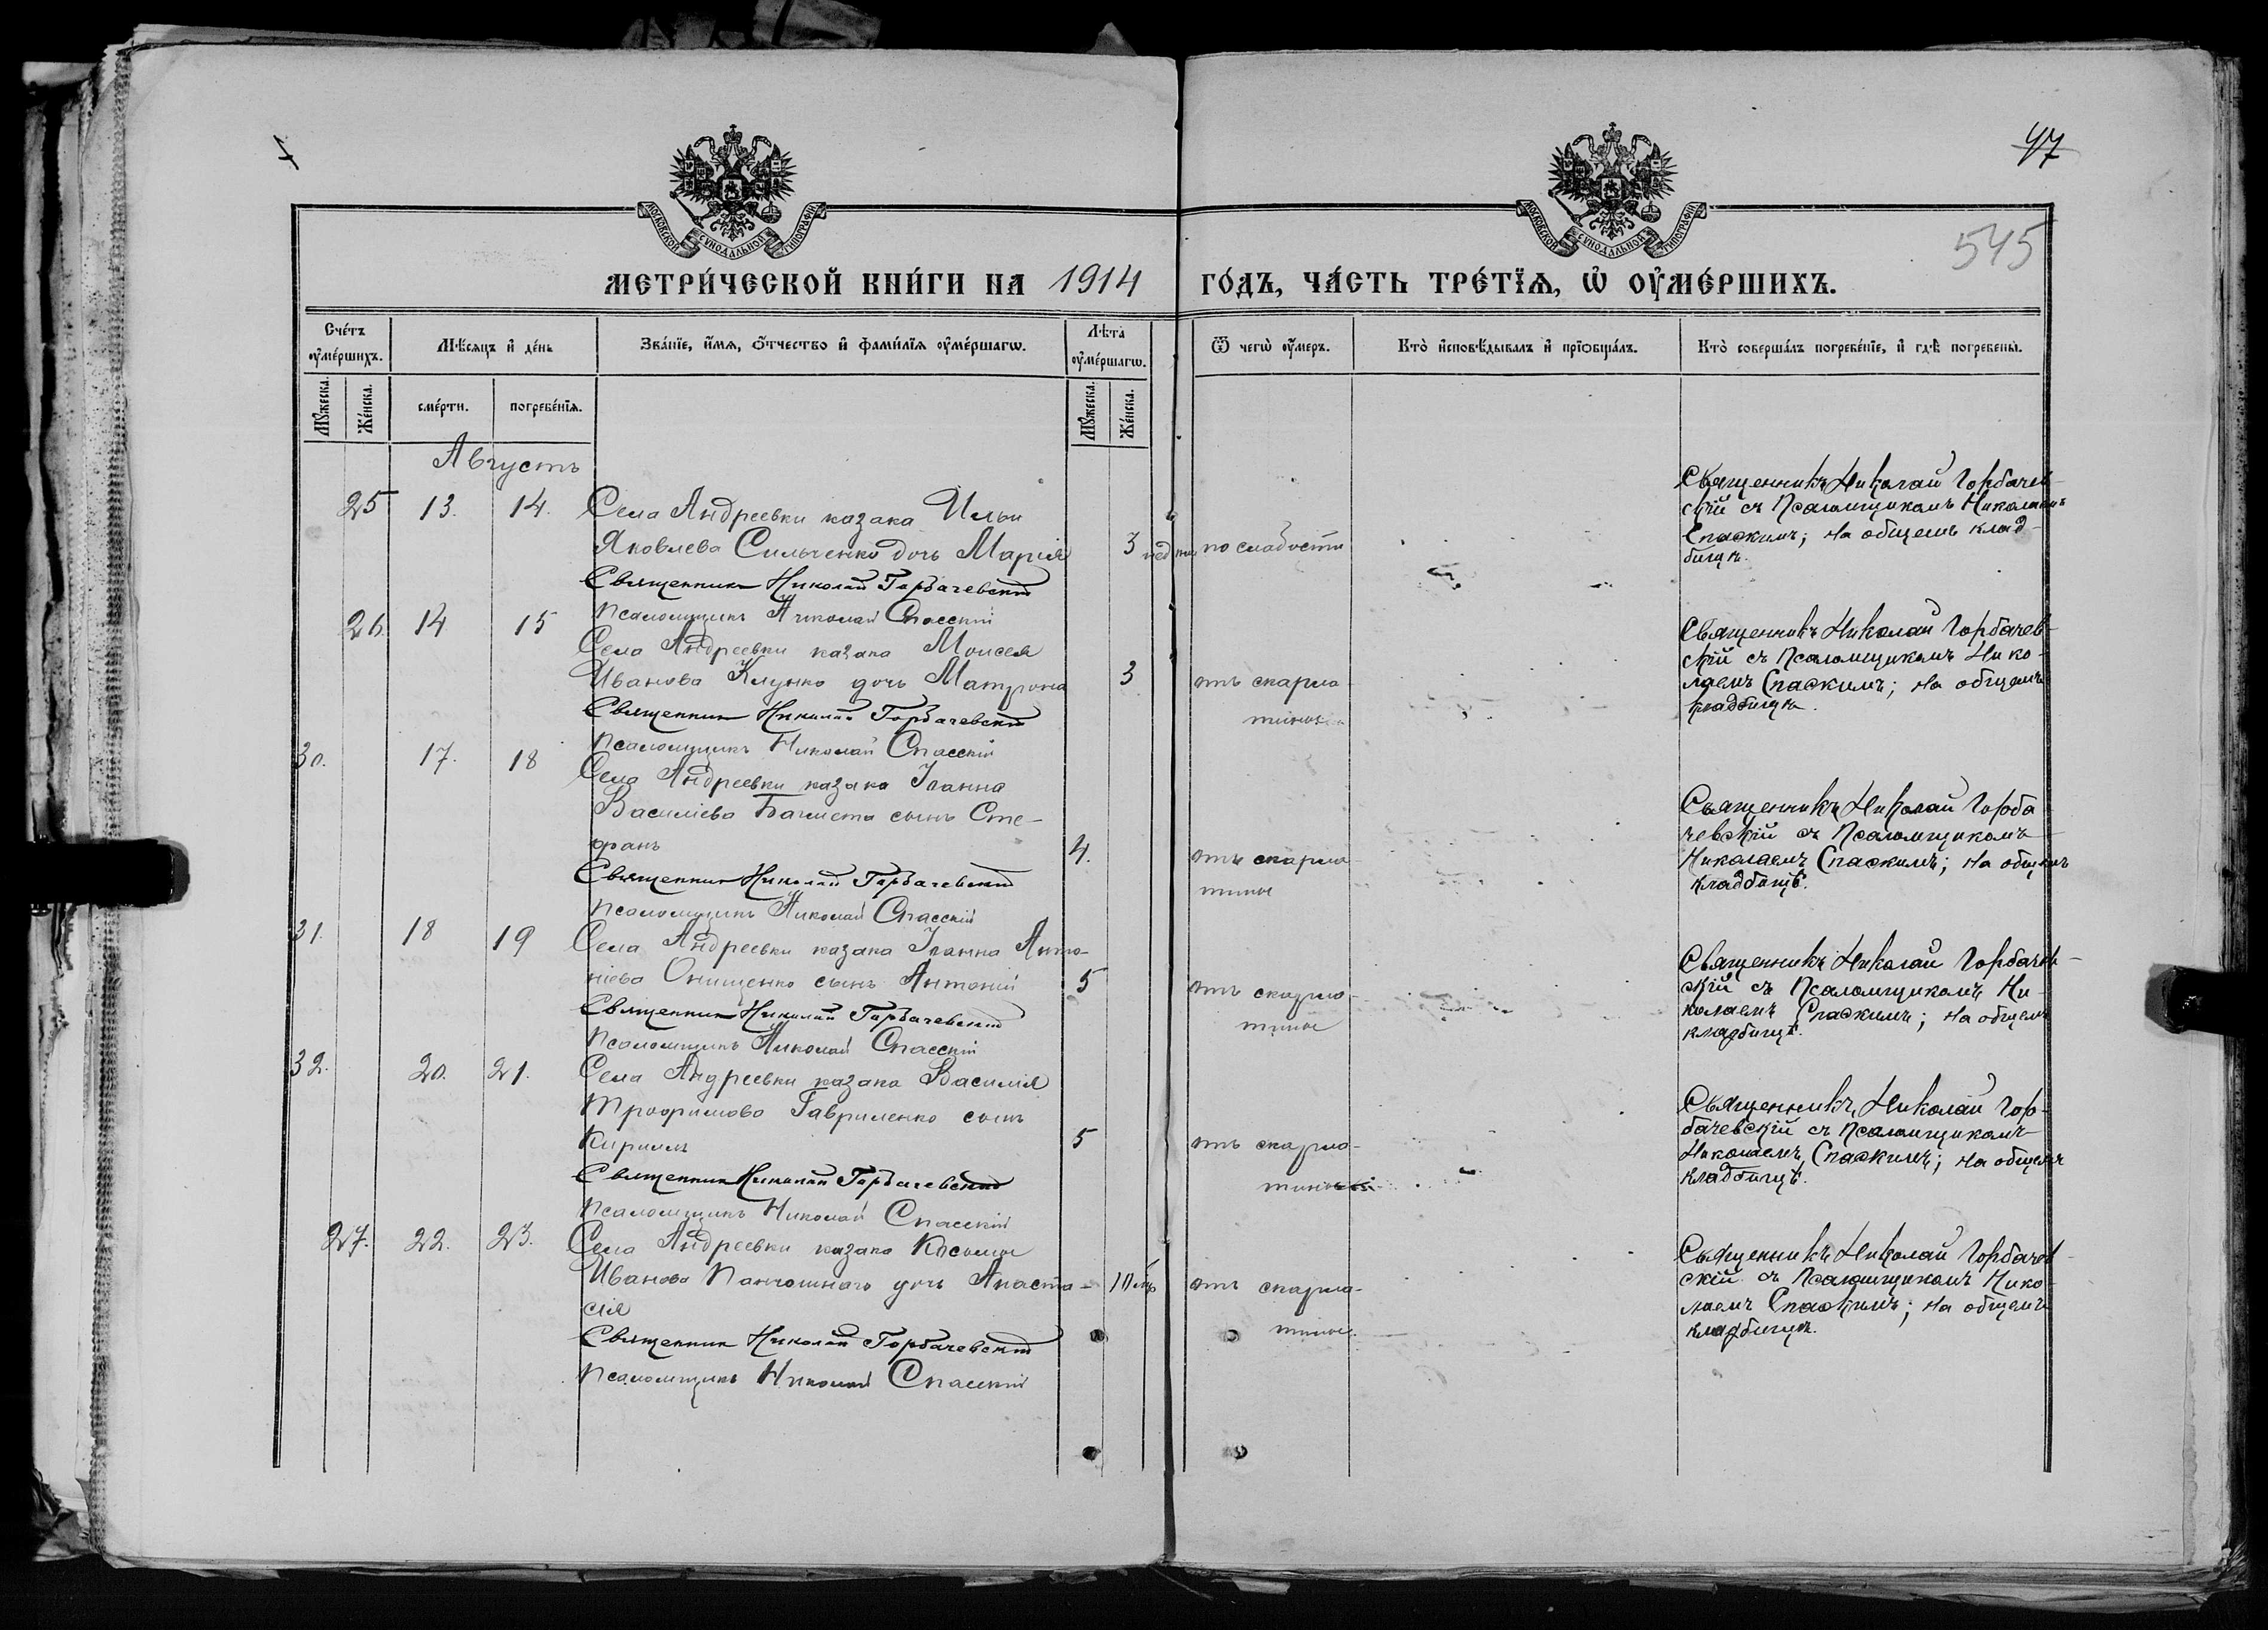 47
545
МОСКОВСКОЙ СѴНОДАЛЬНОЙ ТИПОГРАФІИ
МОСКОВСКОЙ СѴНОДАЛЬНОЙ ТИПОГРАФІИ
МЕТРИ́ЧЕСКОЙ КНИ́ГИ НА 1914 ГО́ДЪ, ЧА́СТЬ ТРЕ́ТЇѦ, Ѡ҆ ОУ҆МЕ́РШИХЪ.
Сче́тъ оу҆ме́ршихъ.
Мꙋжеска.
Же́нска.
Мѣ́сяцъ и҆ де́нь
сме́рти.
погребе́нїѧ.
Зва́нїе, и҆́мѧ, ѻ҆́тчество и҆ фами́лїѧ оу҆ме́ршагѡ.
Лѣ́та оу҆ме́ршагѡ.
Мꙋжеска.
Же́нска.
Ѿ чегѡ̀ оу҆́меръ.
Кто̀ и҆сповѣ́дывалъ и҆ прїѻбща́лъ.
Кто̀ соверша́лъ погребе́нїе, и҆ гдѣ̀ погребены̀.
Августъ
25 13. 14. Села Андреевки казака Ильи
Яковлева Сильченко дочь Марія 3 недѣли по слабости
Священникъ Николай Горбачевскій
Псаломщикъ Николай Спасскій
Священникъ Николай Горбачев-
скій съ Псаломщикомъ Николаемъ
Спаскимъ; на общемъ клад-
бищѣ.
26. 14 15
Села Андреевки казака Моисея
Иванова Клунко дочь Матрона 3 отъ скарла-
тины
Священникъ Николай Горбачевскій
Псаломщикъ Николай Спасскій
Священникъ Николай Горбачев-
скій съ Псаломщикомъ Нико-
лаемъ Спаскимъ; на общемъ
кладбищѣ.
30. 17. 18
Села Андреевки казака Іоанна
Василіева Багмета сынъ Сте-
фанъ 4. отъ скарла-
тины
Священникъ Николай Горбачевскій
Псаломщикъ Николай Спасскій
Священникъ Николай Горба-
чевскій съ Псаломщикомъ
Николаемъ Спаскимъ; на общемъ
кладбищѣ.
31. 18 19 Села Андреевки казака Іоанна Анто-
ніева Онищенко сынъ Антоній 5 отъ скарла-
тины
Священникъ Николай Горбачевскій
Псаломщикъ Николай Спасскій
Священникъ Николай Горбачев-
скій съ Псаломщикомъ Ни-
колаемъ Спаскимъ; на общемъ
кладбищѣ.
32. 20. 21. Села Андреевки казака Василія
Трофимова Гавриленко сынъ
Кириллъ 5 отъ скарла-
тины
Священникъ Николай Горбачевскій
Псаломщикъ Николай Спасскій
Священникъ Николай Гор-
бачевскій съ Псаломщикомъ
Николаемъ Спаскимъ; на общемъ
кладбищѣ.
27. 22. 23. Села Андреевки казака Космы
Иванова дочь Анаста-
сія отъ скарла-
тины
Священникъ Николай Горбачевскій
Псаломщикъ Николай Спасскій
Священникъ Николай Горбачев-
скій съ Псаломщикомъ Нико-
лаемъ Спаскимъ; на общемъ
кладбищѣ.